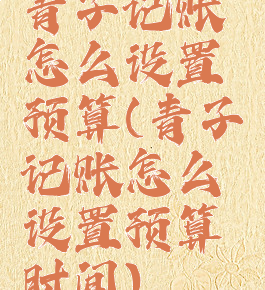 青子记账
怎么设置
预算(青子
记账怎么
设置预算
时间)